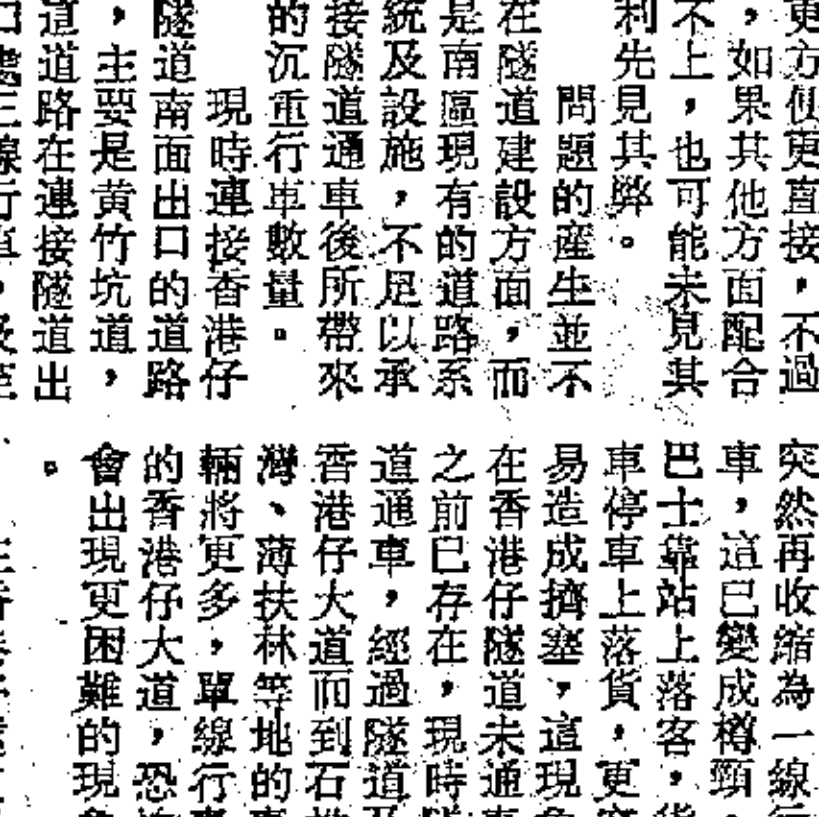 更方便更直接，不過
，如果其他方面配合
不上，也可能未見其
利先見其弊。
問題的產生並不
在隧道建設方面，而
是南區現有的道路系
統及設施，不足以承
接隧道通車後所帶來
的沉重行車數量。
現時連接香港仔
隧道南面出口的道路
，主要是黃竹坑道，
道道路在連接隧道出
突然再收縮為一線
車，這已變成樽頸
巴士靠站上落客，
車停車上落貨，更
易造成擠塞，這現
在香港仔隧道未通
之前已存在，現時
道通車，經過隧道
香港仔大道而到石
灣、薄扶林等地的
輛將更多，單線行
的香港仔大道，恐
會出現更困難的現
。